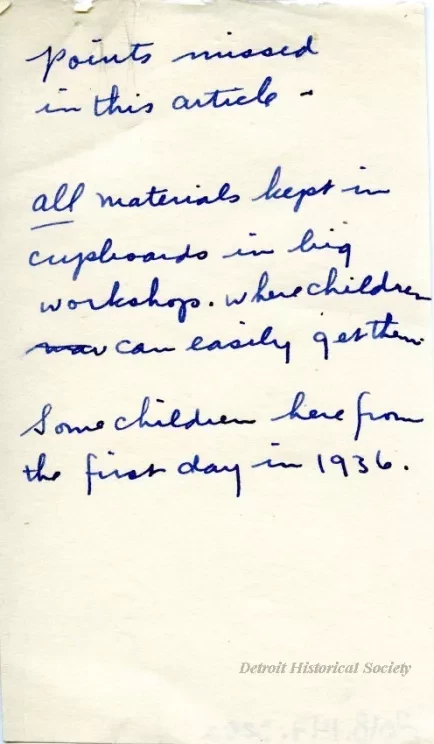 points missed
in this article -
all materials kept in
cupboards in big
workshop. where children
can easily get them.
Some children here from
the first day in 1936.
Detroit Historical Society